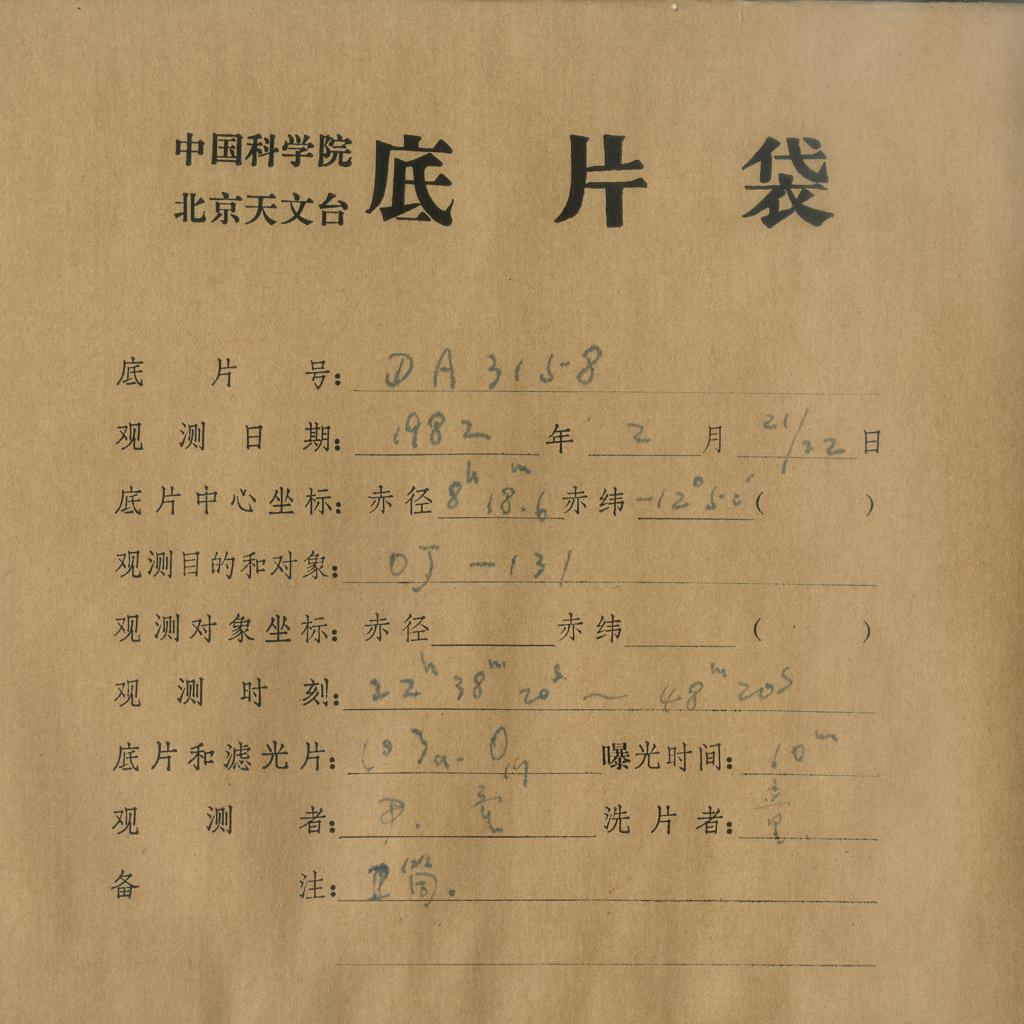 中国科学院
北京天文台
底片袋
底片号: DA3158
观测日期: 1982年2月21/22日
底片中心坐标: 赤径8h18m.6赤纬-12°5( )
观测目的和对象: OJ-131
观测对象坐标: 赤径 赤纬 ( )
观测时刻: 22h38m20s~48m20s
底片和滤光片: 103a-O 曝光时间: 10m
观测者: 洗片者: 童
备注: II筒.